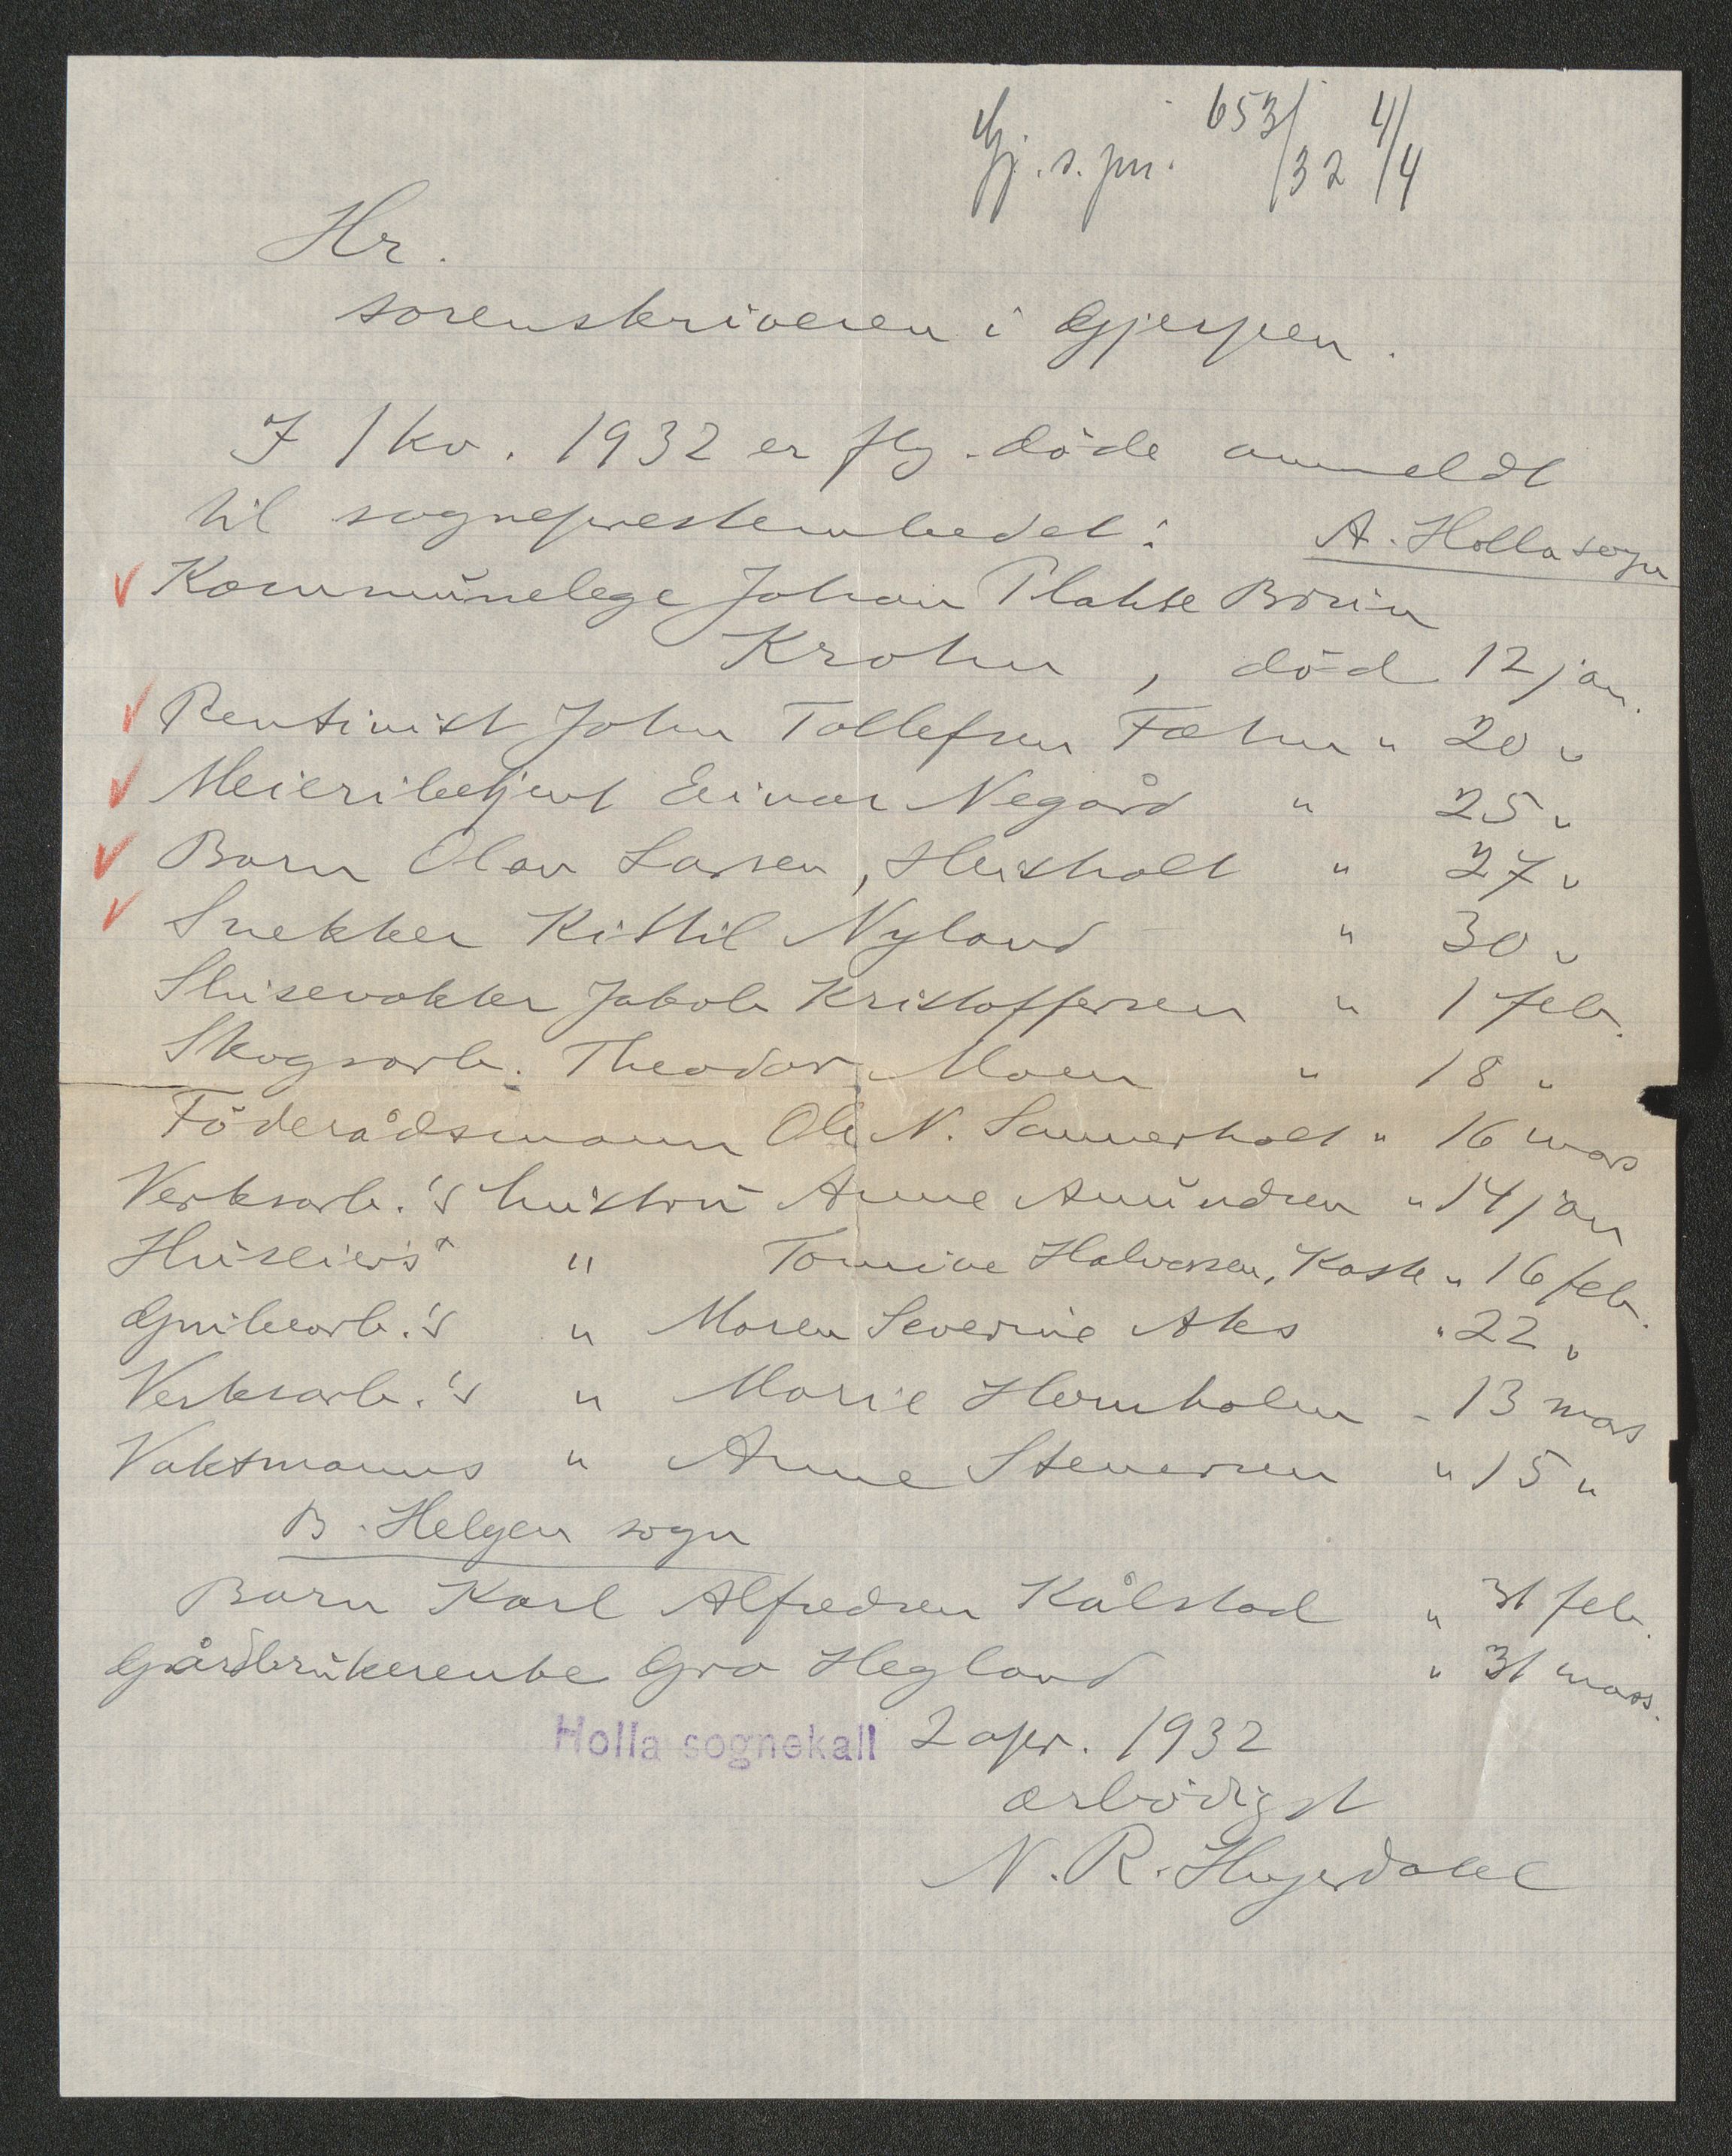 Gj. s. jnr. 653/32 4/4
Hr.
sorenskriveren i Gjerpen.
I 1 kv. 1932 er flg. døde anmeldt
til sogneprestembedet: A. Holla sogn
Kommunelege Johan Flahte Brun
Krohn, död 12 jan.
Rentinist John Tollefsen Fæhn " 20 "
Meieribetjent Einar Negård " 25 "
Barn Olav Larsen, Heisholt " 27 "
Snekker Kittil Nyland " 30 "
Slusevokter Jakob Kristoffersen " 1 feb.
Skogsarb. Theodor Moen " 18 "
Föderådsmann Ole N. Sannerholt " 16 mars
Verksarb.'s hustru Anne Amundsen " 14 jan
Huseier's " Tomine Halvorsen, Kaste " 16 feb.
Grubearb.'s " Maren Severine Aks " 22 "
Verksarb.'s " Marie Hornholm - 13 mars
Vaktmanns " Anne Stenersen " 15 "
B. Helgen sogn
Barn Karl Alfredsen Kålstad " 31 feb.
Gårdbrukerenke Gro Hegland " 31 mars.
Holla sognekall 2 apr. 1932
ærbödigst
N. R.